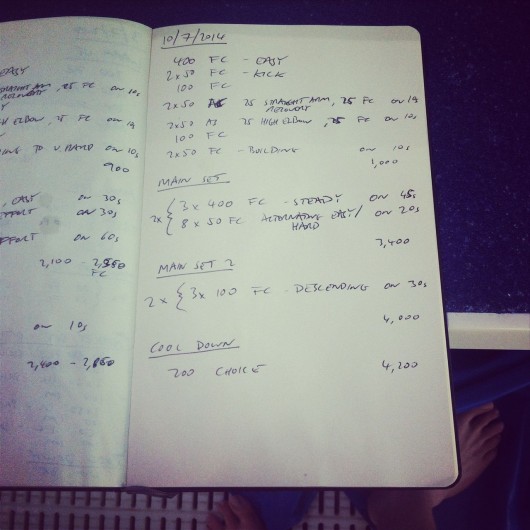 EASY
STRAIGHT ARM, 25 FC on 10s
RECOVERY
HIGH ELBOW, 25 FC on 10s
TO on 10s
900
, EASY on 30s
on 30s
on 60s
2,100 -
FC
on 10s
2,400 -
10/7/2014
400 FC - EASY
2x50 FC - KICK
100 FC
2x50 AS 25 STRAIGHT ARM, 25 FC on 10s
RECOVERY
2x50 AS 25 HIGH ELBOW, 25 FC on 10s
100 FC
2x50 FC - BUILDING on 10s
1,000
MAIN SET
2x { 3x 400 FC - STEADY on 45s
8 x 50 FC ALTERNATING EASY/ on 20s
HARD
3,400
MAIN SET 2
2x { 3x 100 FC - DESCENDING on 30s
4,000
COOL DOWN
200 CHOICE 4,200